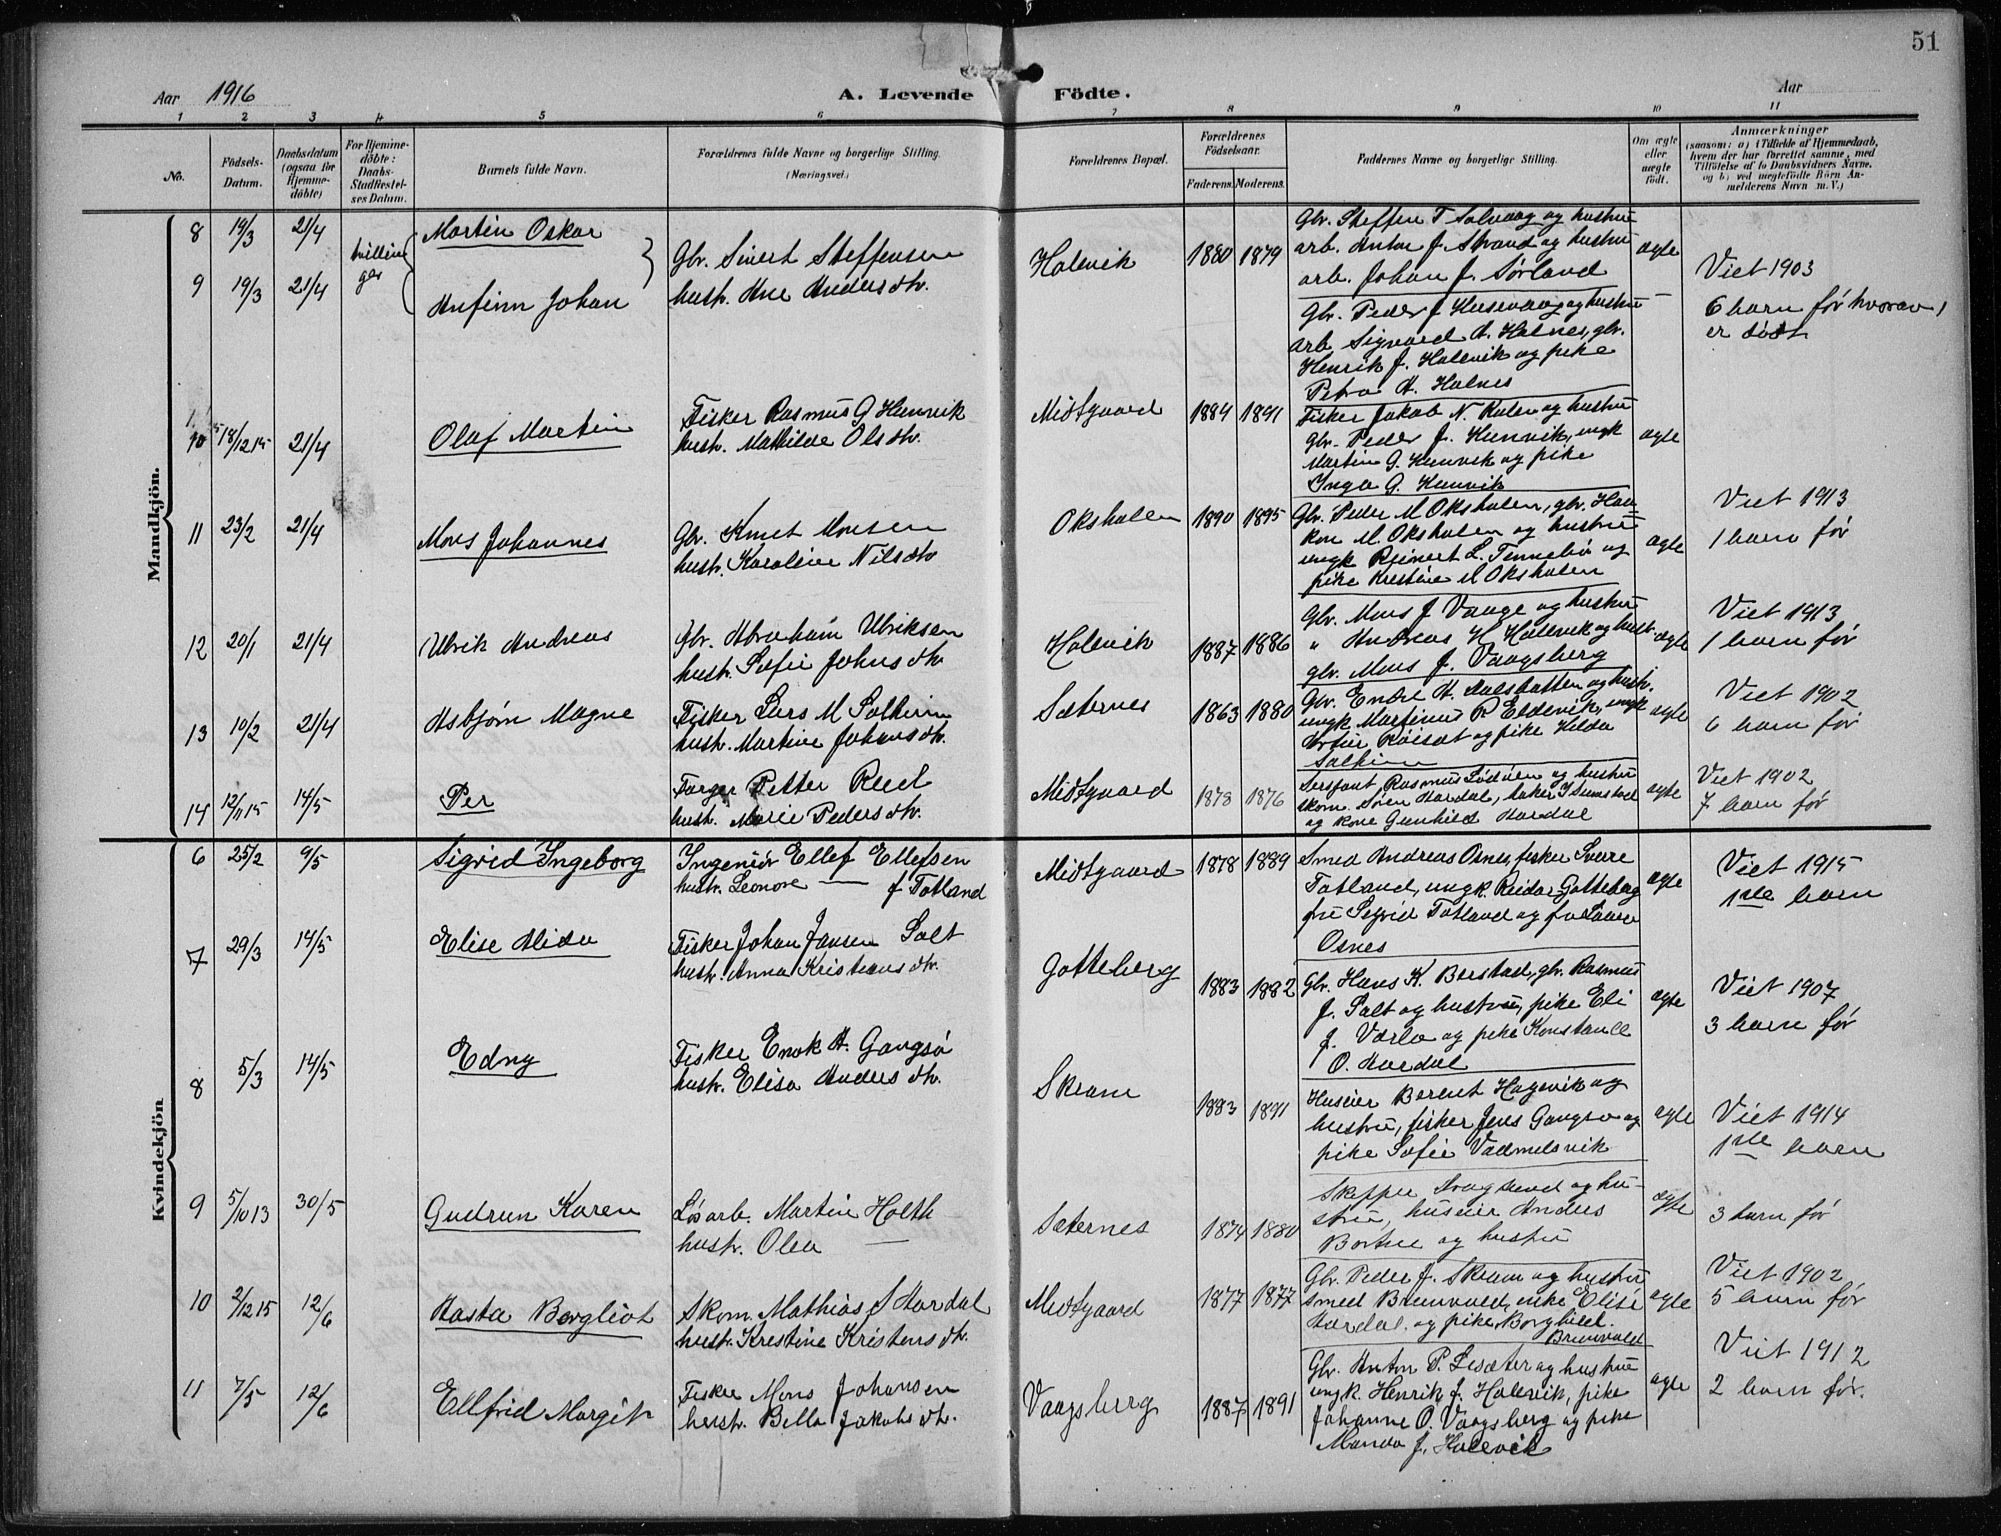 51
Aar 1916
A. Levende Födte.
Aar
1 2 3 4 5 6 7 8 9 10 11
No.
Födsels-
Datum.
Daabsdatum
(ogsaa for
Hjemme-
döbte)
For Hjemme-
döbte:
Daabs-
Stadfæstel-
ses Datum.
Barnets fulde Navn.
Forældrenes fulde Navne og borgerlige Stilling.
(Næringsvei.)
Forældrenes Bopæl.
Forældrenes
Födselsaar.
Faderens. Moderens.
Faddernes Navne og borgerlige Stilling.
Om ægte
eller
uægte
født.
Anmærkninger
(saasom: a) i Tilfælde af Hjemmedaab,
hvem der har forrettet samme, med
Tilföielse af to Daabsvidners Navne,
og b) ved uægtefödte Börn An-
melderens Navn m. V.)
Mandkjön.
8 19/3 21/4 Martin Oskar
9 19/3 21/4 Anfinn Johan
Gbr. Sivert Steffensen
hustr. Ane Andersdtr.
Halevik 1880 1879
Gbr. Steffen T Solvaag og hustru
arb. Anton J. Strand og hustru
arb. Johan J. Sørland
Gbr. Peder J Husevaag og hustru
arb Sigvard A. Halnes, gbr.
Henrik J. Halevik og pike
Petra A. Halnes
ægte
Viet 1903
6 barn før hvorav 1
er død
10 18/12 15 21/4 Olaf Martin
Fisker Rasmus G Henvik
hustr. Mathilde Olsdtr.
Midtgaard 1884 1891
Fisker Jakob N. og hustru
Gbr. Peder J. Henvik, ungk
Martin G. Henvik og pike
Inga G. Henvik
ægte
11 23/2 21/4 Mons Johannes
Gbr. Knut Monsen
hustr. Karoline Nilsdtr
Oksholen 1890 1895
Gbr. Peder M Oksholen, gbr. Haa-
kon M. Oksholen og hustru
ungk Reinert L. Tennebø og
pike Kristine M Oksholen
ægte
Viet 1913
1 barn før
12 20/1 21/4 Ulrik Andreas
Gbr. Abraham Ulriksen
hustr. Sofie Johnsdtr.
Halevik 1887 1886
Gbr. Mons J. Vaage og hustru
" Andreas H Halevik og hustr.
gbr. Mons J. Vaagsberg
ægte
Viet 1913
1 barn før
13 10/2 21/4 Asbjørn Magne
Fisker Lars M
hustr. Martine Johansdtr.
Sæternes 1863 1880
Gbr. Endre A. og hustr.
ungk Martinus R Eldevik, ungk
og pike Hilda
ægte
Viet 1902
6 barn før
14 12/11 15 14/5 Per
Farger Petter Rud
hustr. Marie Pedersdtr.
Midtgaard 1878 1876
Sersjant Rasmus og hustru
skom. Søren Hardal,
og kone Gunhild Hardal
ægte
Viet 1902
7 barn før
Kvindekjön
6 25/2 9/5 Sigrid Ingeborg
Ingeniør Ellef Ellefsen
hustr. Leonore — f Totland
Midtgaard 1878 1889
Smed Andreas Osnes, fisker Sverre
Totland, ungk. Reidar Gotteberg
fru Sigrid Totland og
Osnes
ægte
Viet 1915
1ste barn
7 29/3 14/5 Elise Alida
Fisker Johan Jansen Salt
hustr. Anna Kristiansdtr.
Gotteberg 1883 1882
Gbr. Hans K. Berstad, gbr. Rasmus
J. Salt og hustru, pike Eli
J. Værlo og pike Konstanse
O. Hardal
ægte
Viet 1907
3 barn før
8 5/3 14/5 Edny
Fisker Enok A. Gangsø
hustr. Elisa Andersdtr.
Skram 1883 1891
Huseier Berent Hagevik og
hustru, fisker Jens Gangsø og
pike Sofie Vedmelsvik
ægte
Viet 1914
1ste barn
9 5/10 13 30/5 Gudrun Karen
Løsarb. Martin Holth
hustr. Olea —
Sæternes 1874 1880
Skipper Dragsund og hu-
stru, huseier Anders
og hustru
ægte
3 barn før
10 2/12 15 12/6 Aasta Bergliot
Skom. Mathias S Hardal
hustr. Kristine Kristensdtr.
Midtgaard 1877 1877
Gbr. Peder J. Skram og hustru
smed Brunvold, enke Elise
Hardal. og pike Borghild
Brunvold
ægte
Viet 1902
5 barn før
11 7/5 12/6 Ellfrid Margit
Fisker Mons Johansen
hustr. Bella Jakobsdtr.
Vaagsberg 1887 1891
Gbr. Anton P. Lisæter og hustru
ungk. Henrik J. Halevik, pike
Johanne O. Vaagsberg og pike
Manda J. Halevik
ægte
Viet 1912
2 barn før.